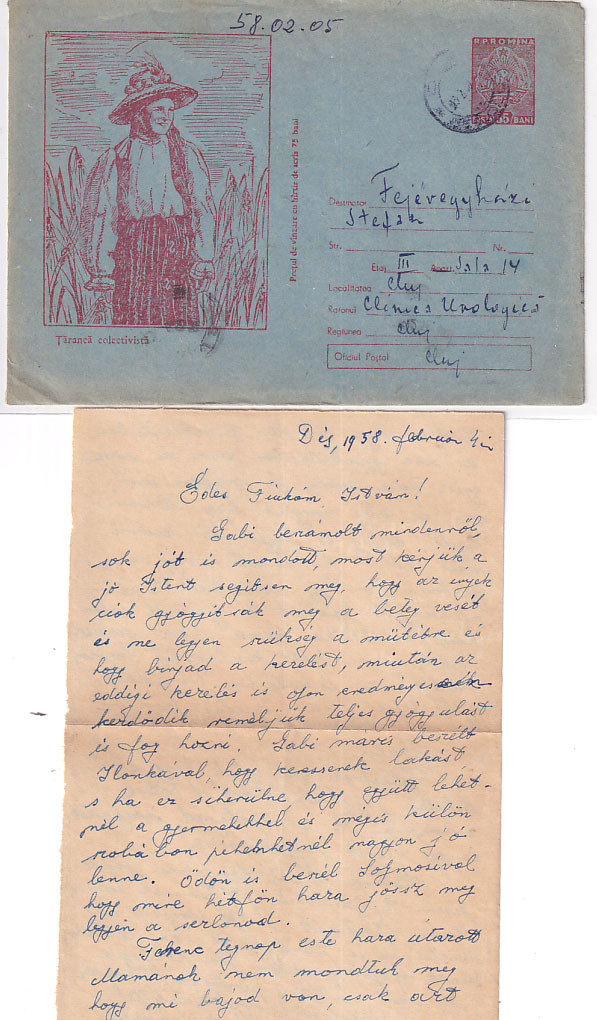 58.02.05
R.P.ROMINA
55 BANI
Țărancă colectivistă
Prețul de vînzare cu hîrtie de scris 75 bani
Destinatar Fejévegyházi
Stefan
Str. Nr.
Etaj III Apart. Sala 14
Localitatea Cluj
Raionul Clinica Urologică
Regiunea Cluj
Oficiul Poștal Cluj
Dés, 1958. február 4én
Édes Fiukám István!
Gabi beszámolt mindenről,
sok jót is mondott, most kérjük a
jó Istent segitsen meg, hogy az inyek
ciok gyógyitsák meg a beteg vesét
és ne legyen szükség a műtétre és
hogy birjad a kezelést, miután az
eddigi kezelés is ojon eredményesen
kezdődik reméljük teljes gyógyulást
is fog hozni. Gabi máris beszélt
Ilonkával, hogy keressenek lakást,
s ha ez sikerülne, hogy együtt lehet-
nél a gyermekekkel és mégis külön
szobában pihenhetnél nagyon jó
lenne. Ödön is beszél Solymosival
hogy mire hétfőn haza jössz meg
legyen a szerlonod.
Ferenc tegnap este haza útazott
Mamának nem mondtuk meg
hogy mi bajod van, csak azt